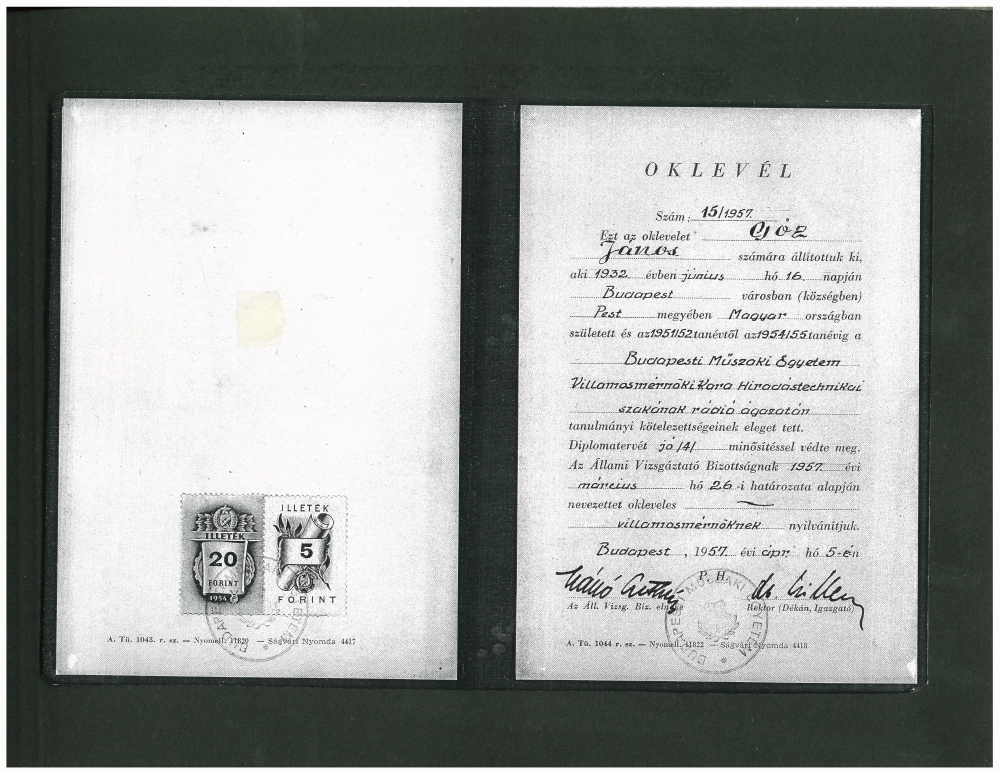 ILLETÉK
20
FORINT
1954
ILLETÉK
5
FORINT
A. Tü. 1043. r. sz. — Nyomell. 11820 — Ságvári Nyomda 4417
OKLEVÉL
Szám: 15/1957.
Ezt az oklevelet Góz
János számára állítottuk ki,
aki 1932. évben június hó 16. napján
Budapest városban (községben)
Pest megyében Magyar országban
született és az 1951/52 tanévtől az 1954/55 tanévig a
Budapesti Műszaki Egyetem
Villamosmérnöki Kara Híradástechnikai
szakának rádió ágazatán
tanulmányi kötelezettségeinek eleget tett.
Diplomatervét jó /4/ minősítéssel védte meg.
Az Állami Vizsgáztató Bizottságnak 1957. évi
március hó 26-i határozata alapján
nevezettet okleveles
villamosmérnöknek nyilvánítjuk.
Budapest, 1957. évi ápr. hó 5-én
P. H.
Az Áll. Vizsg. Biz. elnöke Rektor (Dékán, Igazgató)
A. Tü. 1044 r. sz. — Nyomell. 11822 — Ságvári Nyomda 4418